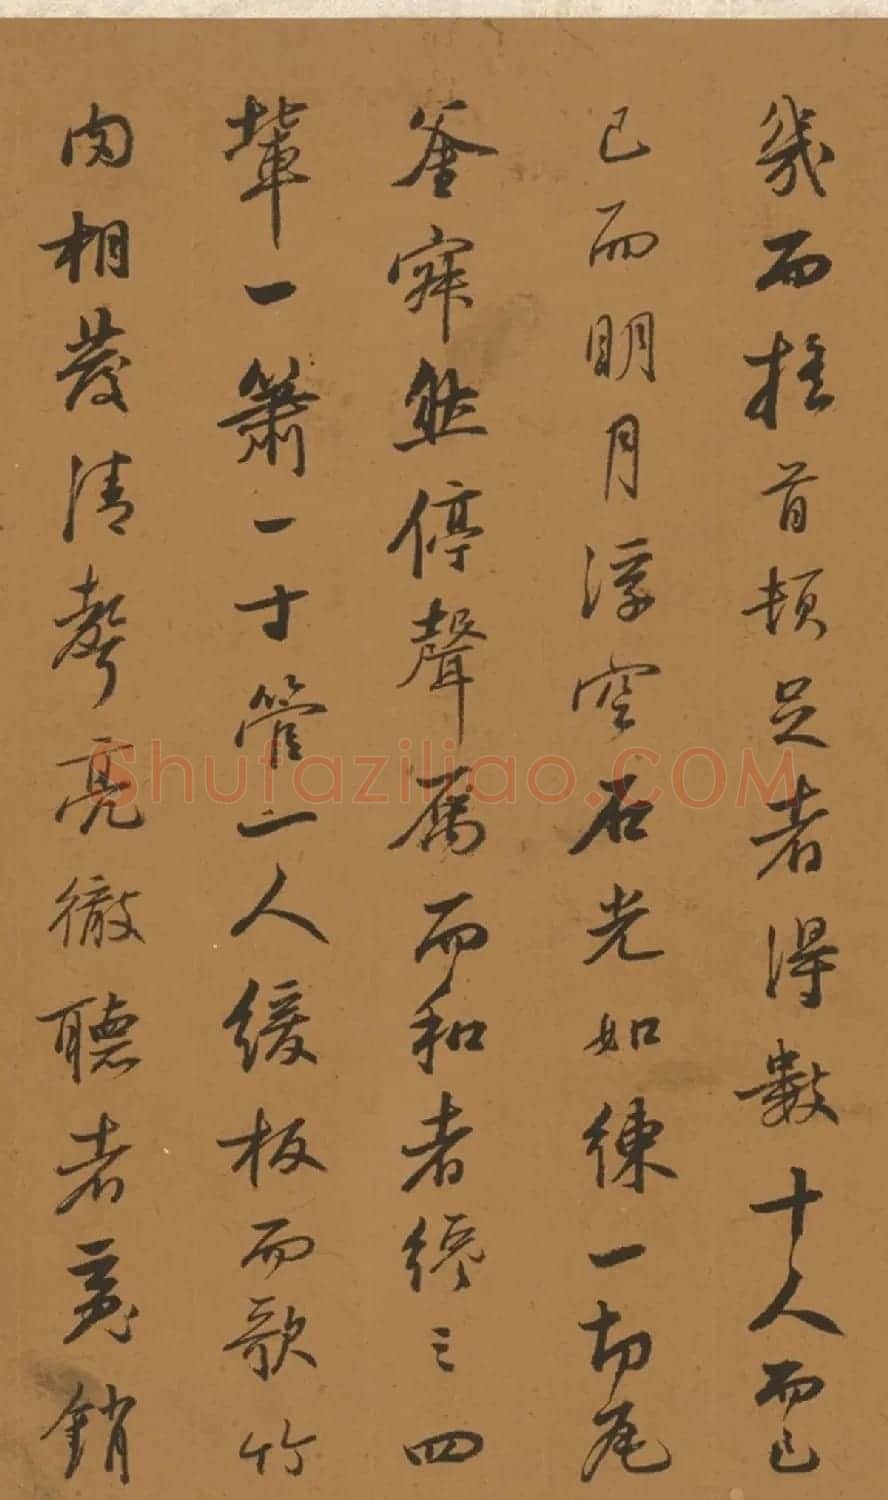 幾而搖首頓足者得數十人而已
已而明月浮空石光如練一切瓦
釜寂然停聲屬而和者纔三四
輩一簫一寸管一人緩板而歌竹
肉相發清聲亮徹聽者魂銷
Shufaziliao.COM